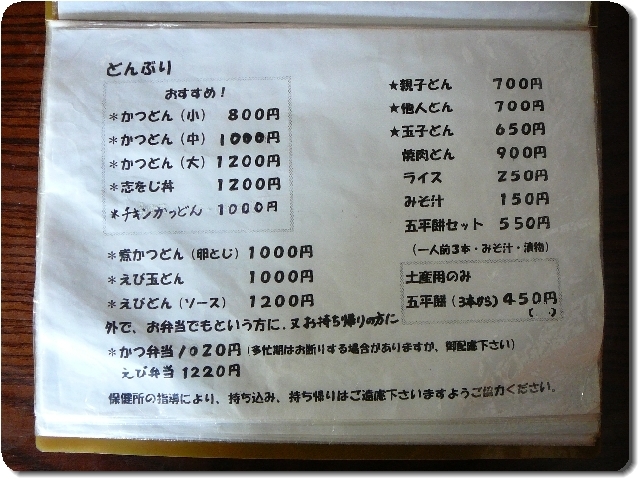 どんぶり
おすすめ！
＊かつどん（小） 800円
＊かつどん（中） 1000円
＊かつどん（大） 1200円
＊志をじ丼 1200円
＊チキンかつどん 1000円
＊煮かつどん（卵とじ） 1000円
＊えび玉どん 1000円
＊えびどん（ソース） 1200円
★親子どん 700円
★他人どん 700円
★玉子どん 650円
焼肉どん 900円
ライス 250円
みそ汁 150円
五平餅セット 550円
（一人前3本・みそ汁・漬物）
土産用のみ
五平餅（3本から）450円
外で、お弁当でもという方に、又お持ち帰りの方に
＊かつ弁当 1020円（多忙期はお断りする場合がありますが、御配慮下さい）
えび弁当 1220円
保健所の指導により、持ち込み、持ち帰りはご遠慮下さいますようご協力ください。